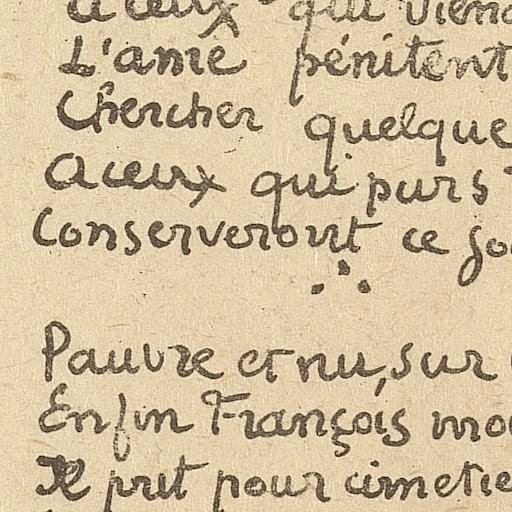 à ceux qui viend
L'âme pénitent
Chercher quelque
A ceux qui purs
Conserveront ce
Pauvre et nu, sur
Enfin François mou
Il prit pour cimetiè